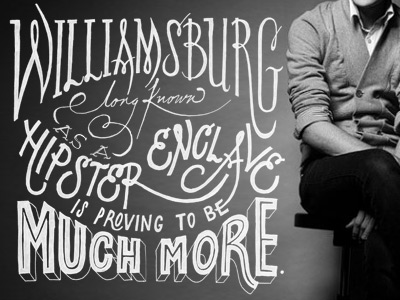 WILLIAMSBURG
long known
AS A
HIPSTER ENCLAVE
IS PROVING TO BE
MUCH MORE.